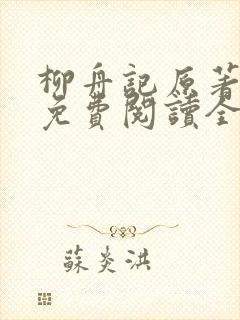 柳舟記原著
免費閱讀全
蘇炎洪